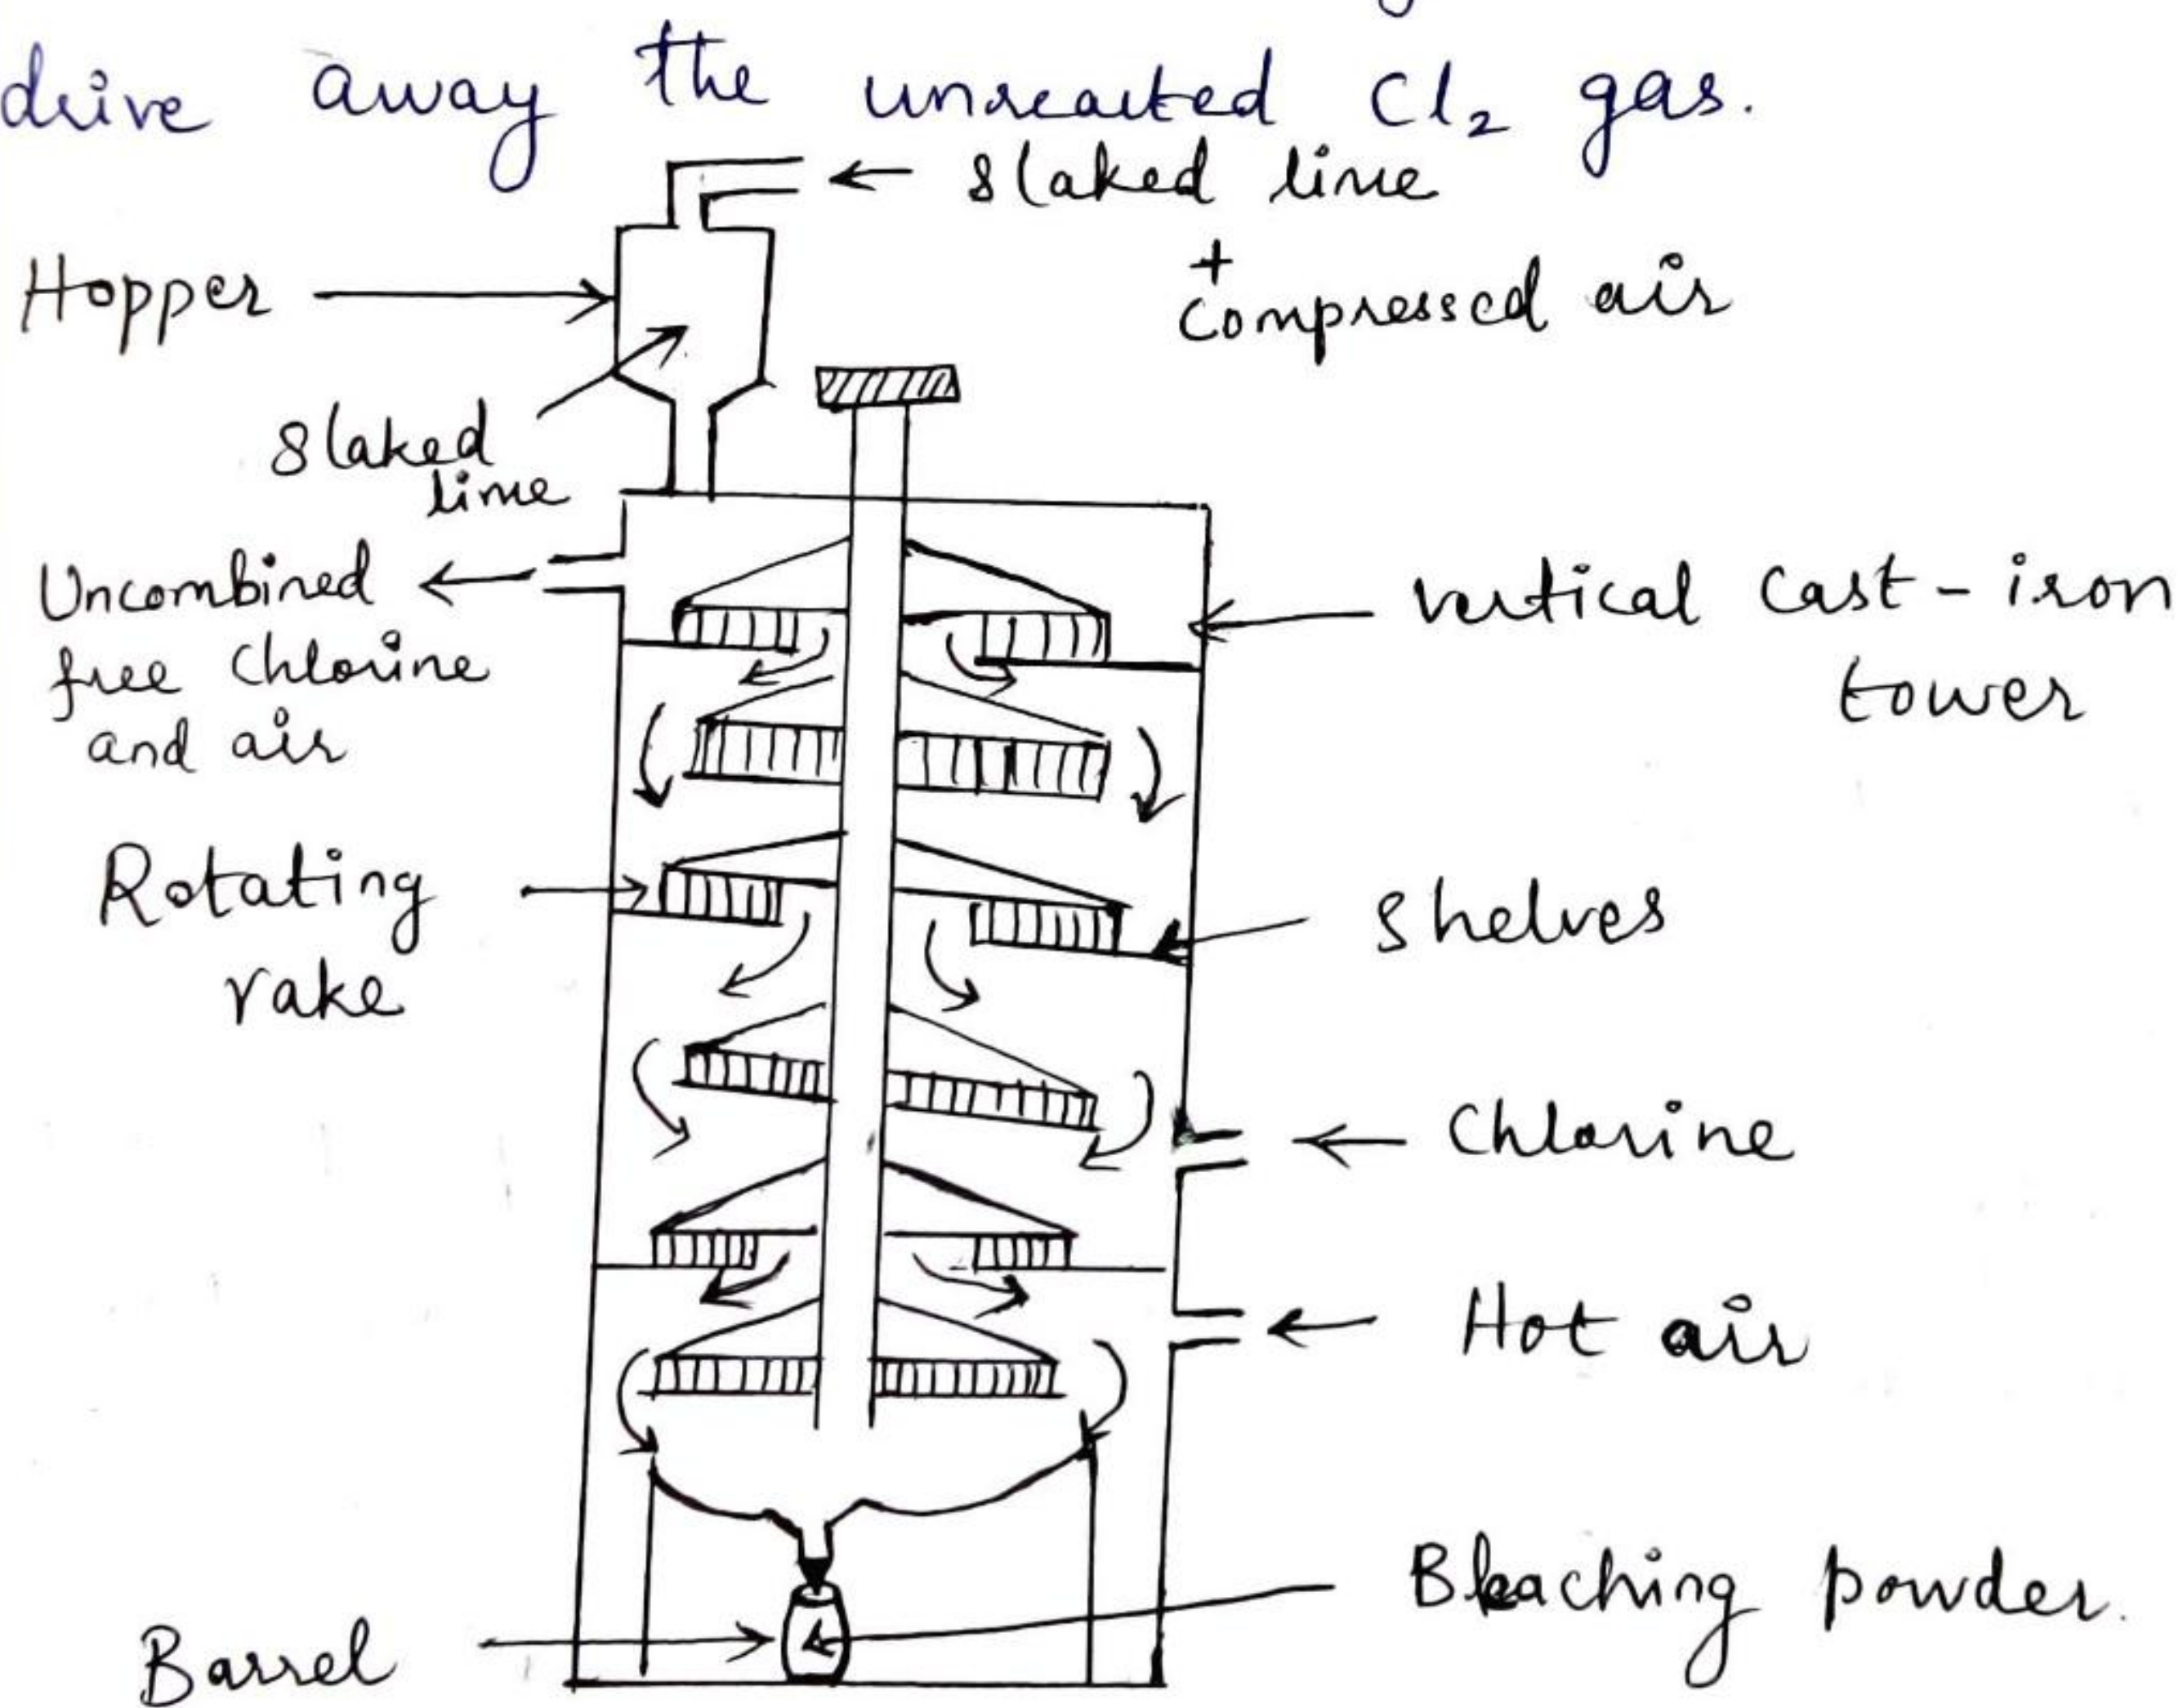 drive away the unreacted Cl₂ gas.
slaked lime
+
compressed air
Hopper
slaked
lime
Uncombined
free Chlorine
and air
vertical cast-iron
tower
Rotating
rake
Shelves
Chlorine
Hot air
Bleaching powder.
Barrel